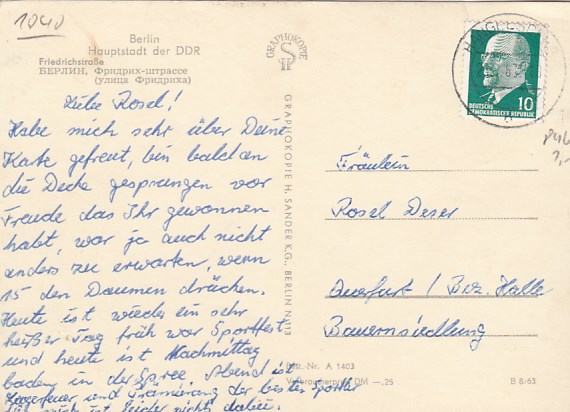 1040
Berlin
Hauptstadt der DDR
Friedrichstraße
БЕРЛИН, Фридрих-штрассе
(улица Фридриха)
Liebe Rosel!
Habe mich sehr über Deine
Karte gefreut, bin bald an
die Decke gesprungen vor
Freude das Ihr gewonnen
habt, war ja auch nicht
anders zu erwarten, wenn
15 den Daumen drücken.
Heute ist wieder ein sehr
heißer Tag früh war Sportfest
und heute ist Nachmittag
baden in der Spree. Abend ist
Lagerfeuer und Prämierung der besten Sportler
ist leider nicht dabei.
GRAPHOKOPIE
SH
GRAPHOKOPIE H. SANDER K.G., BERLIN N 113
10
DEUTSCHE
DEMOKRATISCHE REPUBLIK
Fräulein
Rosel Deser
Querfurt / Bez. Halle
Bauernsiedlung
Best.-Nr. A 1403
Verbraucherpreis DM —,25
B 8/63